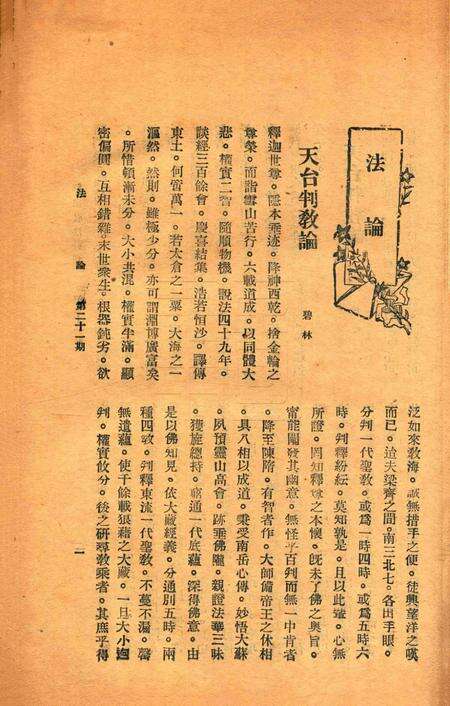 法論
天台判教論
碧林
釋迦世尊。隱本垂迹。降神西乾。捨金輪之
尊榮。而詣雪山苦行。六載道成。以同體大
悲。權實二智。隨順物機。說法四十九年。
談經三百餘會。慶喜結集。浩若恒沙。譯傳
東土。何啻萬一。若太倉之一粟。大海之一
漚然。然則。雖極少分。亦可謂淵博廣富矣
。所惜頓漸未分。大小共混。權實半滿。顯
密偏圓。互相錯雜末世衆生。根器鈍劣。欲
泛如來敎海。誠無措手之便。徒興望洋之嘆
而已。逮夫梁齊之間。南三北七。各出手眼。
分判一代聖敎。或爲一時四時。或爲五時六
時。判釋紛紜。莫知孰是。且以此等。心無
所證。罔知釋尊之本懷。旣未了佛之奧旨。
甯能闡發其幽意。無怪乎百判而無一中肯者
。降至陳隋。有智者作。大師備帝王之休相
。具八相以成道。秉受南岳心傳。妙悟大蘇
。夙預靈山高會。跡乘佛隴。親證法華三昧
。獲旋總持。窮通一代底蘊。深得佛意。由
是以佛知見。依大藏經義。分通別五時。兩
種四敎。判釋東流一代聖敎。不蔓不漏。罄
無遺蘊。使千餘載狼藉之大藏。一旦大小迥
判。權實攸分。後之硏尋敎乘者。其庶乎得
法論 第二十一期
一